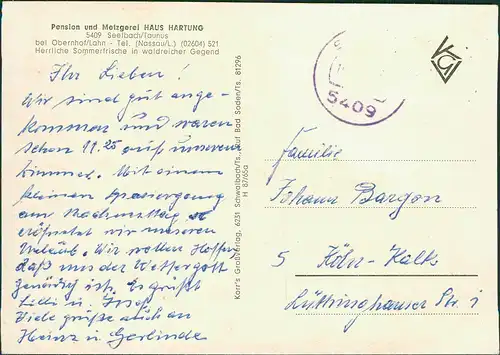 Pension und Metzgerei HAUS HARTUNG
5409 Seelbach/Taunus
bei Obernhof/Lahn - Tel. (Nassau/L.) (02604) 521
Herrliche Sommerfrische in waldreicher Gegend
Ihr Lieben!
Wir sind gut ange-
kommen und waren
schon 11.25 auf unserem
Zimmer. Mit einem
kleinen Spaziergang
am Nachmittag
eröffneten wir unseren
Urlaub. Wir wollen hoffen
daß uns der Wettergott
gnädig ist. Es grüßt
Lilli u. Josef
Viele Grüße auch an
Heinz u. Gerlinde
Karr's Grußverlag, 6231 Schwalbach/Ts., Ruf Bad Soden/Ts. 81296
H 87/65a
5409
Familie
Johann Bargon
5 Köln-Kalk
Lüttringhauser Str. 1